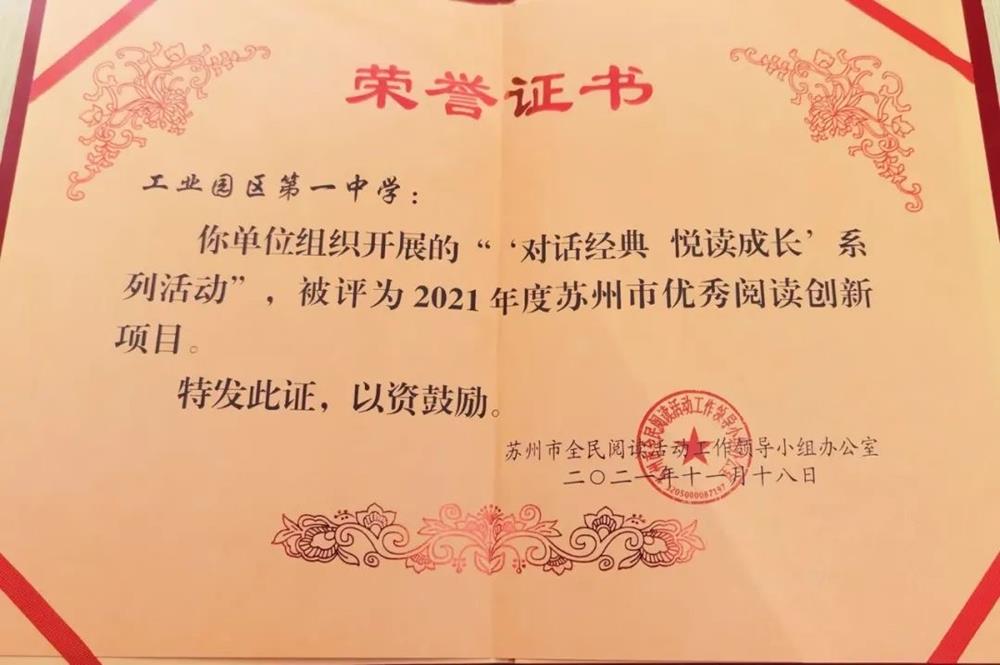 荣誉证书
工业园区第一中学：
你单位组织开展的“‘对话经典 悦读成长’系
列活动”，被评为2021年度苏州市优秀阅读创新
项目。
特发此证，以资鼓励。
苏州市全民阅读活动工作领导小组办公室
二〇二一年十一月十八日
3205000087197